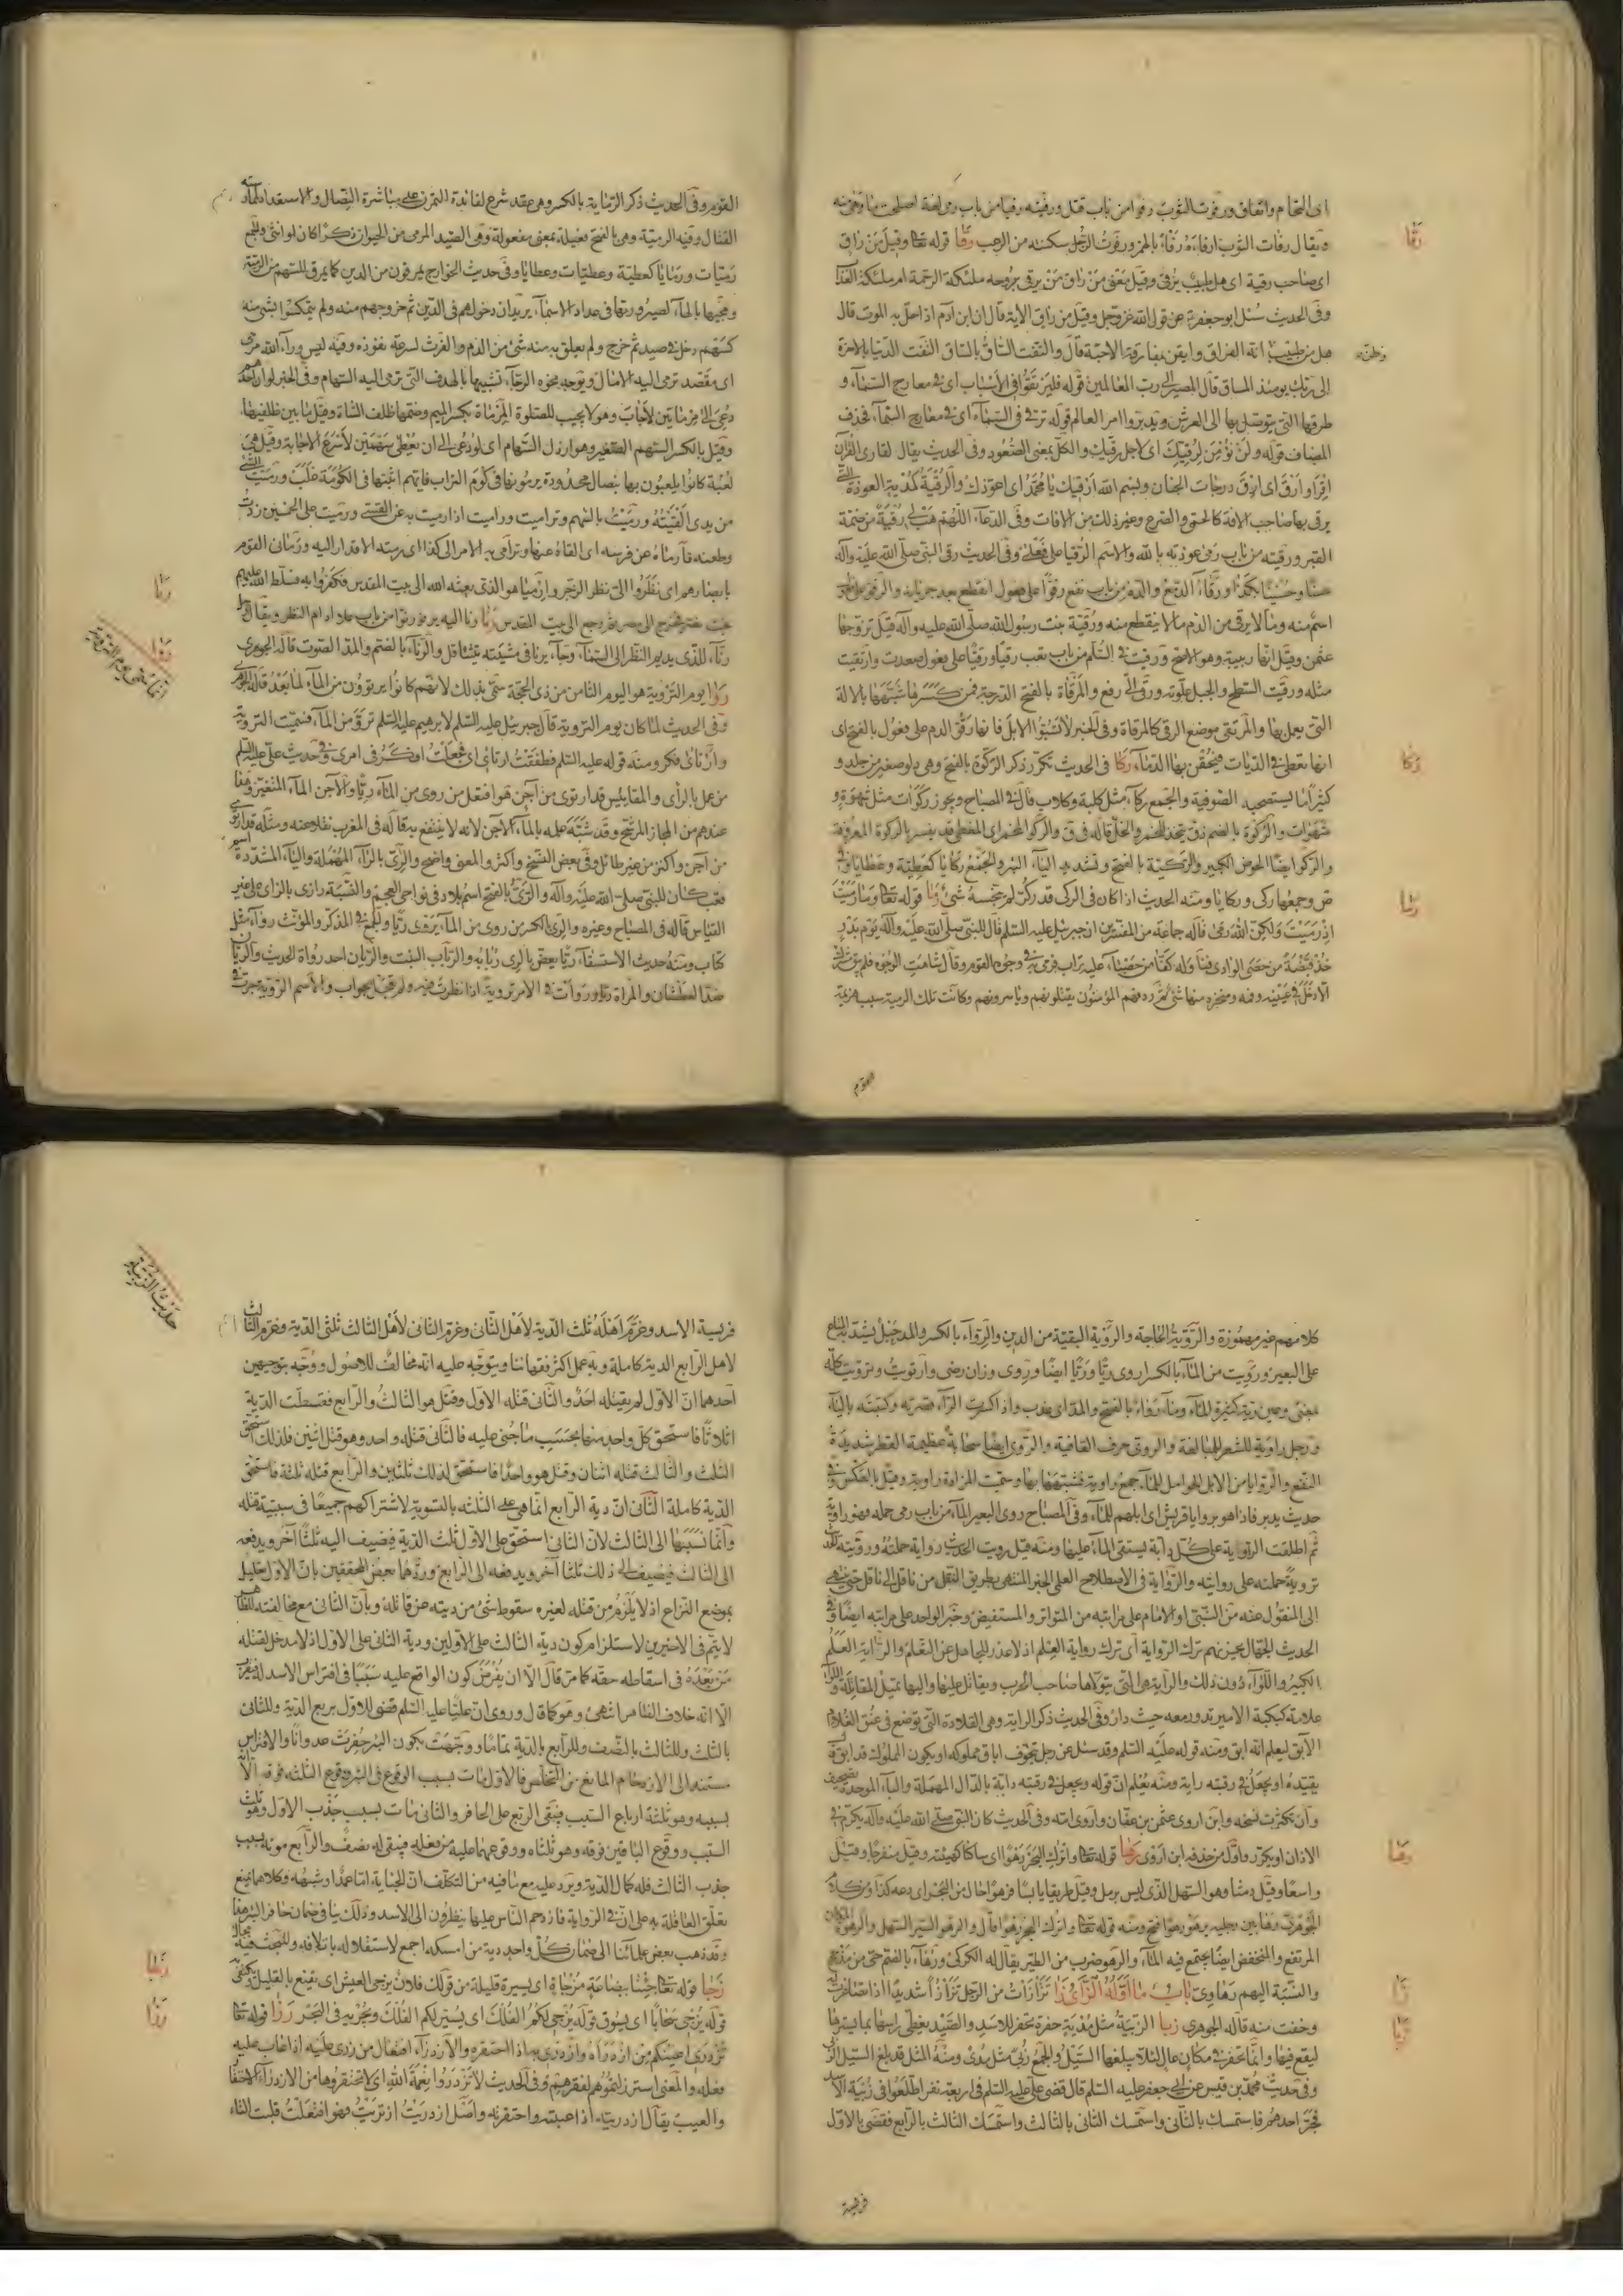 اى التحام واتفاق ورفوت الثوب رفوا من باب قتل ورفيته رفيا من باب رمى لغة اصلحت
ويقال رفات الثوب ارفاءه رفاء بالهمز ورفوت الرجل سكنته من الرعب رقا قوله تعا وقيل من راق
اى صاحب رقية اى هل طبيب يرقى وقيل معنى من راق من يرقى بروحه ملئكة الرحمة ام ملئكة العذا
وفى الحديث سئل ابو جعفر عن قول الله عز وجل وقيل من راق الاية قال ان ابن ادم اذا حل به الموت قال
هل من طبيب انه الفراق وايقن بمفارقة الاحبة قال والتفت الساق بالساق التفت الدنيا بالاخرة
وظن
الى ربك يومئذ المساق قال المصير الى رب العالمين قوله فليرتقوا فى الاسباب اى فى معارج السماء و
طرقها التى يتوصل بها الى العرش ويدبروا امر العالم قوله ترقى فى السماء اى فى معارج السماء فحذف
المضاف قوله ولن نؤمن لرقيك اى لاجل رقيك والكل بمعنى الصعود وفى الحديث يقال لقارى القران
اقرا وارق اى ارق درجات الجنان وبسم الله ارقيك يا محمد اى اعوذك والرقية كمدية العوذة التى
يرقى بها صاحب الافة كالحمى والصرع وغير ذلك من الافات وفى الدعاء اللهم هب لى رقية من ضمة
القبر ورقيته من باب رمى عوذته بالله والاسم الرقيا على فعلى وفى الحديث رقى النبى صلى الله عليه وآله
حسنا وحسينا بكذا ورقاء الدمع والدم من باب نفع رقوا على فعول انقطع بعد جريانه والرقو على
اسم منه وما لا يرقى من الدم ما لا ينقطع منه ورقية بنت رسول الله صلى الله عليه وآله قيل تزوجها
عثمن وقيل انها ربيبة وهو الاصح ورقيت فى السلم من باب تعب رقيا ورقيا على فعول صعدت وارتقيت
مثله ورقيت السطح والجبل علوته ورقى الى رفع والمرقاة بالفتح الدرجة فمن كسرها شبهها بالالة
التى يعمل بها والمرتقى موضع الرقى كالمرقاة وفى الخبر لا تسبوا الابل فانها رقو الدم على فعول بالفتح اى
انها تعطى فى الديات فتحقن بها الدماء ركا فى الحديث تكرر ذكر الركوة بالفتح وهى دلو صغير من جلد و
كثيرا ما يستصحبه الصوفية والجمع ركاء مثل كلبة وكلاب قال فى المصباح ويجوز ركوات مثل شهوة و
شهوات والركوة بالضم زق يتخذ للخمر والخل قاله فى ق والركو المخمر اى المغطى قد يفسر بالركوة المعروفة
والركو ايضا الحوض الكبير والركية بالفتح وتشديد الياء البئر والجمع ركايا كعطية وعطايا قاله فى
ص وجمعها ركى وركايا ومنه الحديث اذا كان فى الركى قدر كر لم ينجسه شئ رما قوله تعا وما رميت
اذ رميت ولكن الله رمى قاله جماعة من المفسرين ان جبرئيل عليه السلم قال للنبى صلى الله عليه وآله يوم بدر
خذ قبضة من حصى الوادى فناوله كفا من حصباء عليه تراب فرمى به فى وجوه القوم وقال شاهت الوجوه فلم يبق مشرك
الا دخل فى عينيه وفمه ومنخره منها شئ ثم ردفهم المؤمنون يقتلونهم وياسرونهم وكانت تلك الرمية سبب هزيمة
القوم
رقا
ركا
رما
القوم وفى الحديث ذكر الرماية بالكسر وهى عقد شرع لفائدة التمرن على مباشرة النصال والاستعداد لممارسة
القتال وفيه الرمية وهى بالفتح فعيلة بمعنى مفعولة وهى الصيد المرمى من الحيوان ذكرا كان او انثى والجمع
رميات ورمايا كعطية وعطيات وعطايا وفى حديث الخوارج يمرقون من الدين كما يمرق السهم من الرمية
ومجيئها بالهاء لصيرورتها فى عداد الاسماء يريد ان دخولهم فى الدين ثم خروجهم منه ولم يتمكنوا بشئ منه
كسهم دخل فى صيد ثم خرج ولم يعلق به منه شئ من الدم والفرث لسرعة نفوذه وفيه ليس وراء الله مرمى
اى مقصد ترمى اليه الامال ويوجه نحوه الرجاء تشبيها بالهدف التى ترمى اليه السهام وفى الخبر لو ان احدكم
دعى الى مرماتين لاجاب وهو لا يجيب للصلوة المرماة بكسر الميم وضمها ظلف الشاة وقيل ما بين ظلفيها
وقيل بالكسر السهم الصغير وهو ارذل السهام اى لو دعى الى ان يعطى سهمين لاسرع الاجابة وقيل هى
لعبة كانوا يلعبون بها بنصال محدودة يرمونها فى كوم التراب فايهم اثبتها فى الكومة غلب ورميت الشئ
من يدى القيته ورميت بالسهم وتراميت وراميت اذا رميت به عن القسى ورميت على الخمسين زدت
وطعنه فارماه عن فرسه اى القاه عنها وترامى به الامر الى كذا اى رمته الاقدار اليه ورمانى القوم
بابصارهم اى نظروا الى نظر الزجر وارميا هو الذى بعثه الله الى بيت المقدس فكفروا به فسلط الله عليهم
بخت نصر فخرج الى مصر ثم رجع الى بيت المقدس رنا رنا اليه يرنو رنوا من باب علا ادام النظر ويقال رجل
رناء للذى يديم النظر الى النساء وجاء يرنا فى مشيته يتثاقل والرناء بالضم والمد الصوت قاله الجوهرى
روا يوم التروية هو اليوم الثامن من ذى الحجة سمى بذلك لانهم كانوا يرتوون من الماء لما بعد قاله الجوهرى
وفى الحديث لما كان يوم التروية قال جبرئيل عليه السلم لابرهيم عليه السلم ترو من الماء فسميت التروية
وارتائ فكر ومنه قوله عليه السلم فطفقت ارتائ اى فجعلت افكر فى امرى وفى حديث على عليه السلم
من عمل بالراى والمقائيس قد ارتوى من آجن هو افتعل من روى من الماء ريا والاجن الماء المتغير وهذا
عندهم من المجاز المرشح وقد شبه علمه بالماء الاجن لانه لا ينتفع به قاله فى المغرب نقلا عنه ومثله قد ارتوى
من آجن واكتنز من غير طائل وفى بعض النسخ واكثر والمعنى واضح والرى بالراء المهملة والياء المشددة اسم
قعب كان للنبى صلى الله عليه وآله والرى بالفتح اسم بلاد فى نواحى العجم والنسبة رازى بالزاى على غير
القياس قاله فى المصباح وغيره والرى بالكسر من روى من الماء يروى ريا والجمع فى المذكر والمؤنث رواء مثل
كتاب ومنه حديث الاستسقاء ريا يغص بالرى ربابه والرباب النبت والريان احد رواة الحديث والريان
ضد العطشان والمراة ريا وروات فى الامر تروية اذا نظرت فيه ولم تعجل بجواب والاسم الروية جرت فى
رنا
روا
انما سمى يوم التروية
كلامهم غير مهموزة والروية الحاجة والروية البقية من الدين والرواء بالكسر والمد حبل يشد به المتاع
على البعير ورويت من الماء بالكسر اروى ريا وريا ايضا وروى وزان رضى وارتويت وترويت كله
بمعنى وعين رية كثيرة الماء وماء رواء بالفتح والمد اى عذب واذا كسرت الراء قصرته وكتبته بالياء
ورجل راوية للشعر للمبالغة والروى حرف القافية والروى ايضا سحابة عظيمة القطر شديدة
النفع والروايا من الابل الحوامل للماء جمع راوية فشبهها بها وسميت المزادة راوية وقيل بالعكس وفى
حديث بدر فاذا هو بروايا قريش اى ابلهم للماء وفى المصباح روى البعير الماء من باب رمى حمله فهو راوية
ثم اطلقت الراوية على كل دابة يستقى الماء عليها ومنه قيل رويت الحديث رواية حملته ورويته الحديث
تروية حملته على روايته والرواية فى الاصطلاح العلمى الخبر المنتهى بطريق النقل من ناقل الى ناقل حتى ينتهى
الى المنقول عنه من النبى او الامام على مراتبه من المتواتر والمستفيض وخبر الواحد على مراتبه ايضا وفى
الحديث الجهال يحزنهم ترك الرواية اى ترك رواية العلم اذ لا عذر للجاهل عن التعلم والراية العلم
الكبير واللواء دون ذلك والراية هى التى يتولاها صاحب الحرب ويقاتل عليها واليها تميل المقاتلة واللواء
علامة كبكبة الامير تدور معه حيث دار وفى الحديث ذكر الراية وهى القلادة التى توضع فى عنق الغلام
الابق ليعلم انه ابق ومنه قوله عليه السلم وقد سئل عن رجل تخوف اباق مملوكه او يكون المملوك قد ابق
يقيده او يجعل فى رقبته راية ومنه يعلم ان قوله ويجعل فى رقبته دابة بالدال المهملة والباء الموحدة تصحيف
وان تكثرت نسخه وابن اروى عثمن بن عفان واروى امه وفى الحديث كان النبى صلى الله عليه وآله يكرم فى
الاذان او يكرر واول من حذفه ابن اروى رها قوله تعا واترك البحر رهوا اى ساكنا كهيئته وقيل منفرجا وقيل
واسعا وقيل دمثا وهو السهل الذى ليس برمل وقيل طريقا يابسا فرهوا حال من البحر اى دعه كذا وذكر
الجوهرى رها بين رجليه يرهو رهوا فتح ومنه قوله تعا واترك البحر رهوا قال والرهو السير السهل والرهو المكان
المرتفع والمنخفض ايضا يجتمع فيه الماء والرهو ضرب من الطير يقال له الكركى ورهاء بالضم حى من مذحج
والنسبة اليهم رهاوى باب ما اوله الزاى زا تزازات من الرجل تزازا شديدا اذا تصاغرت له
وخفت منه قاله الجوهرى زبا الزبية مثل مدية حفرة تحفر للاسد والصيد يغطى راسها بما يسترها
ليقع فيها وانما تحفر فى مكان عال لئلا يبلغها السيل والجمع زبى مثل مدى ومنه المثل قد بلغ السيل الزبى
وفى حديث محمد بن قيس عن ابى جعفر عليه السلم قال قضى على عليه السلم فى اربعة نفر اطلعوا فى زبية الاسد
فخر احدهم فاستمسك بالثانى واستمسك الثانى بالثالث واستمسك الثالث بالرابع فقضى بالاول
فريسة
رها
زا
زبا
فريسة الاسد وغرم اهله ثلث الدية لاهل الثانى وغرم الثانى لاهل الثالث ثلثى الدية وغرم الثالث
لاهل الرابع الدية كاملة وبه عمل اكثر فقهائنا ويتوجه عليه انه مخالف للاصول ووجه بتوجيهين
احدهما ان الاول لم يقتله احد والثانى قتله الاول وقتل هو الثالث والرابع فقسطت الدية
اثلاثا فاستحق كل واحد منها بحسب ما جنى عليه فالثانى قتله واحد وهو قتل اثنين فلذلك استحق
الثلث والثالث قتله اثنان وقتل هو واحدا فاستحق لذلك ثلثين والرابع قتله ثلثة فاستحق
الدية كاملة الثانى ان دية الرابع انما هى على الثلثة بالسوية لاشتراكهم جميعا فى سببية قتله
وانما نسبتها الى الثالث لان الثانى استحق على الاول ثلث الدية فيضيف اليه ثلثا آخر ويدفعه
الى الثالث فيضيف الى ذلك ثلثا آخر ويدفعه الى الرابع وردهما بعض المحققين بان الاول تعليل
بموضع النزاع اذ لا يلزم من قتله لغيره سقوط شئ من ديته عن قاتله وبان الثانى مع مخالفته للظاهر
لا يتم فى الاخيرين لاستلزام كون دية الثالث على الاولين ودية الثانى على الاول اذ لا مدخل لقتله
من بعده فى اسقاط حقه كما مر قال الا ان يفرض كون الواقع عليه سببا فى افتراس الاسد له فيقرب
الا انه خلاف الظاهر انتهى وهو كما قال وروى ان عليا عليه السلم قضى للاول بربع الدية وللثانى
بالثلث وللثالث بالنصف وللرابع بالدية تماما ووجهت بكون البئر حفرت عدوانا والافتراس
مستند الى الازدحام المانع من التخلص فالاول مات بسبب الوقوع فى البئر ووقوع الثلثة فوقه الا انه
بسببه وهو ثلثة ارباع السبب فيبقى الربع على الحافر والثانى مات بسبب جذب الاول وهو ثلث
السبب ووقوع الباقين فوقه وهو ثلثاه ووقوعهما عليه من فعله فيبقى له نصف والرابع موته بسبب
جذب الثالث فله كمال الدية ويرد عليه مع ما فيه من التكلف ان الجناية اما عمدا وشبهه وكلاهما يمنع
تعلق العاقلة به على ان فى الرواية فازدحم الناس عليها ينظرون الى الاسد وذلك ينافى ضمان حافر البئر هنا
وقد ذهب بعض علمائنا الى ضمان كل واحد دية من امسكه اجمع لاستقلاله باتلافه وللبحث فيه مجال
زجا قوله تعا جئنا ببضاعة مزجاة اى يسيرة قليلة من قولك فلان يزجى العيش اى يقنع بالقليل ويكتفى
قوله يزجى سحابا اى يسوق قوله يزجى لكم الفلك اى يسير لكم الفلك ويجريه فى البحر زرا قوله تعا
تزدرى اعينكم من ازدراه وازدرى به اذا احتقره والازدراء افتعال من زرى عليه اذا عاب عليه
فعله والمعنى استرذلتموهم لفقرهم وفى الحديث لا تزدروا نعمة الله اى لا تحتقروها من الازدراء الاحتقا
والعيب يقال ازدريته اذا عبته واحتقرته واصل ازدريت ازتريت فهو افتعلت قلبت التاء
حديث الزبية
زجا
زرا